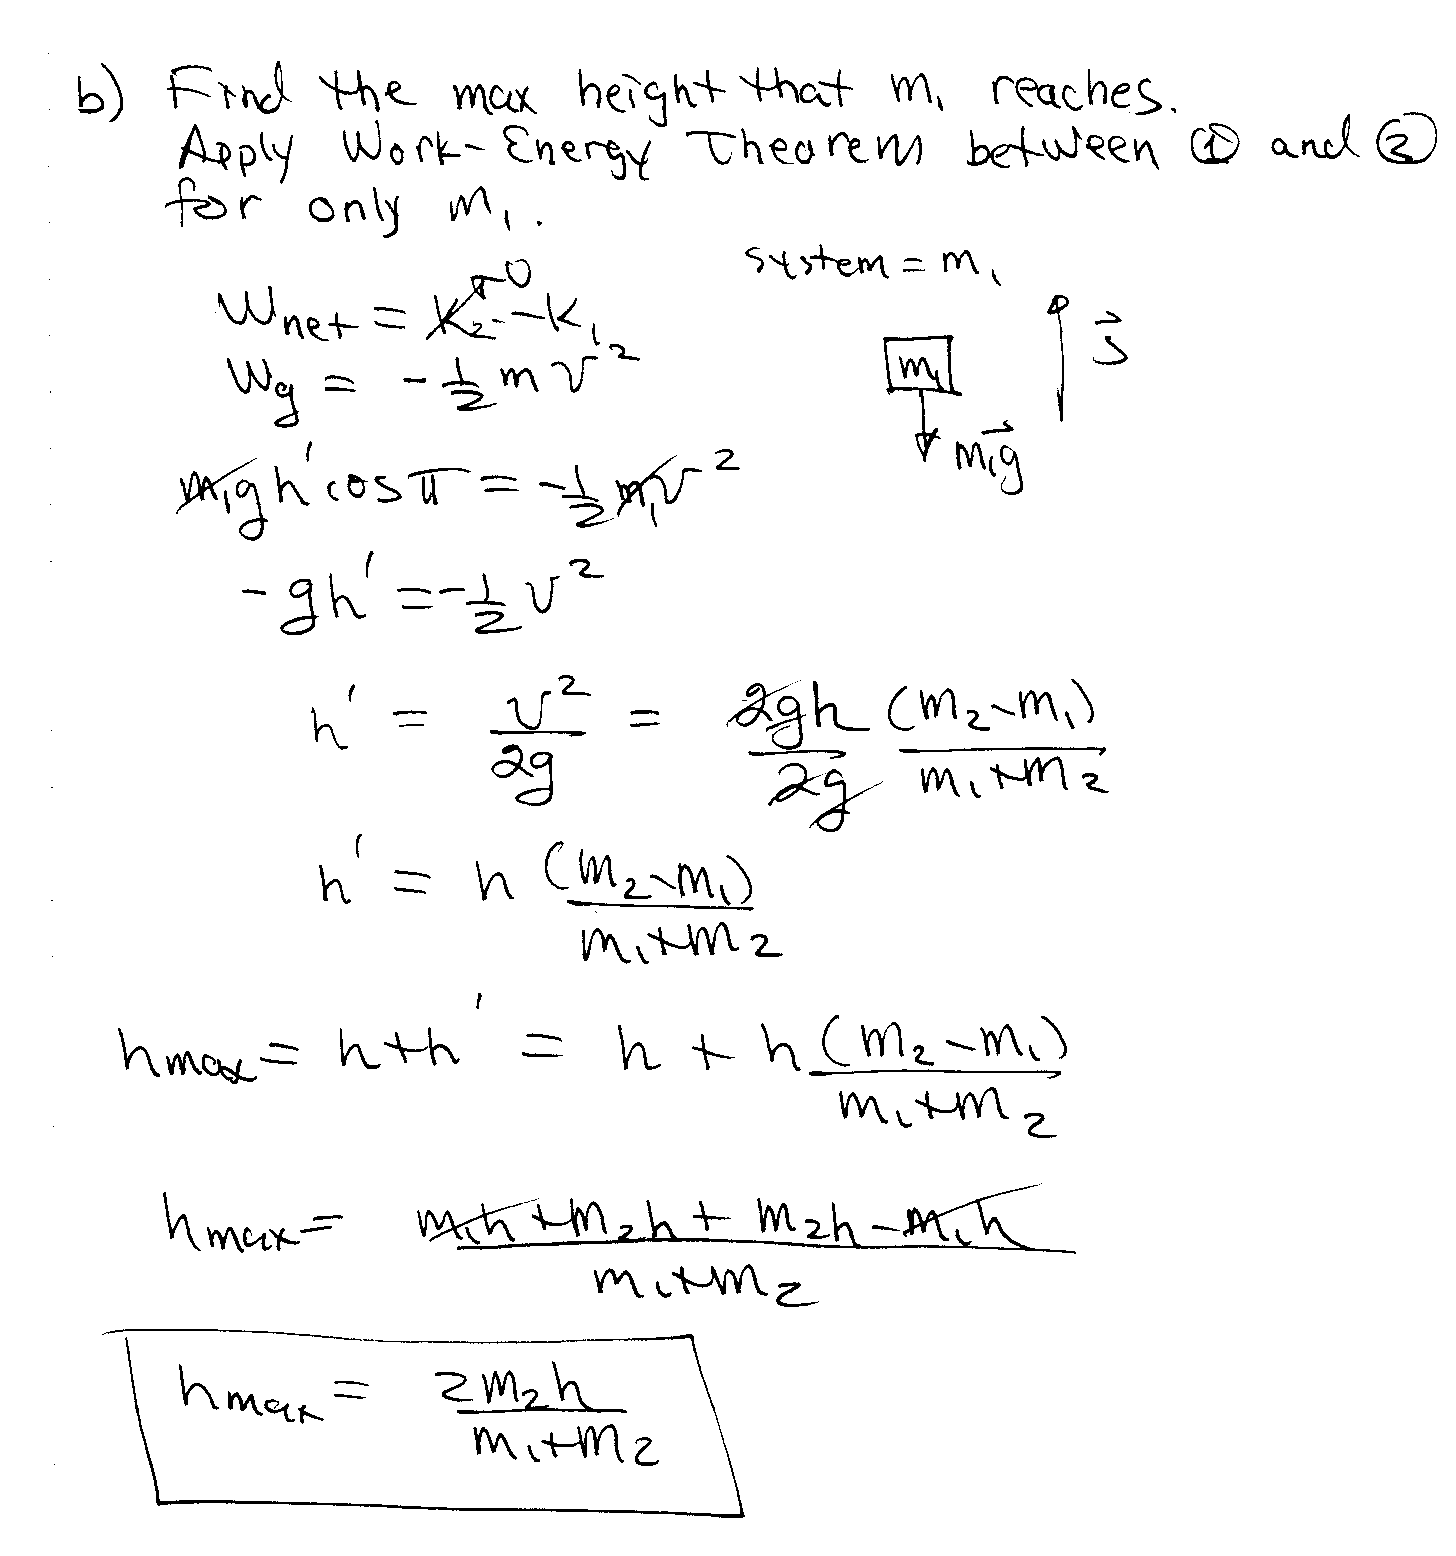 b) Find the max height that m₁ reaches.
Apply Work-Energy Theorem between ① and ②
for only m₁.
system = m₁
Wnet = K₂ - K₁ → 0
Wg = -½ m v²
m₁
s⃗
m₁g⃗
m₁gh' cos π = -½ m₁v²
-gh' = -½ v²
h' = v²/2g = 2gh/2g (m₂-m₁)/m₁+m₂
h' = h (m₂-m₁)/m₁+m₂
hmax = h+h' = h + h(m₂-m₁)/m₁+m₂
hmax = m₁h+m₂h + m₂h-m₁h/m₁+m₂
hmax = 2m₂h/m₁+m₂